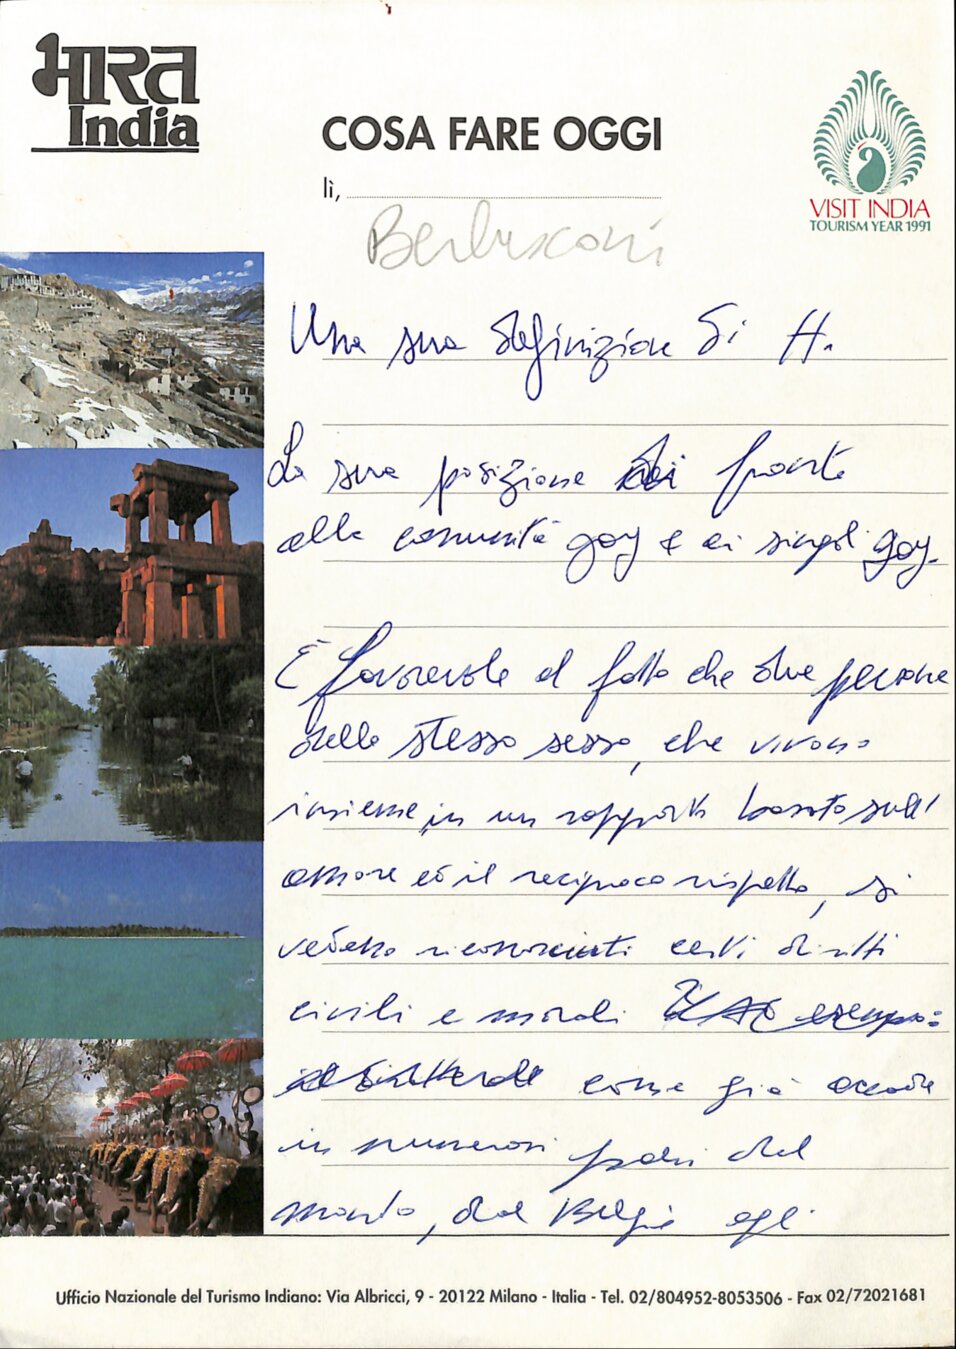 भारत
India
COSA FARE OGGI
lì,
VISIT INDIA
TOURISM YEAR 1991
Berlusconi
Una sua definizione di H.
La sua posizione di fronte
alla comunità goy e ai singoli goy.
È favorevole al fatto che due persone
dello stesso sesso, che vivono
insieme, in un rapporto basato sull'
amore ed il reciproco rispetto, si
vedano riconosciuti certi diritti
civili e morali
come già accade
in numerosi paesi del
mondo, dal Belgio agli
Ufficio Nazionale del Turismo Indiano: Via Albricci, 9 - 20122 Milano - Italia - Tel. 02/804952-8053506 - Fax 02/72021681